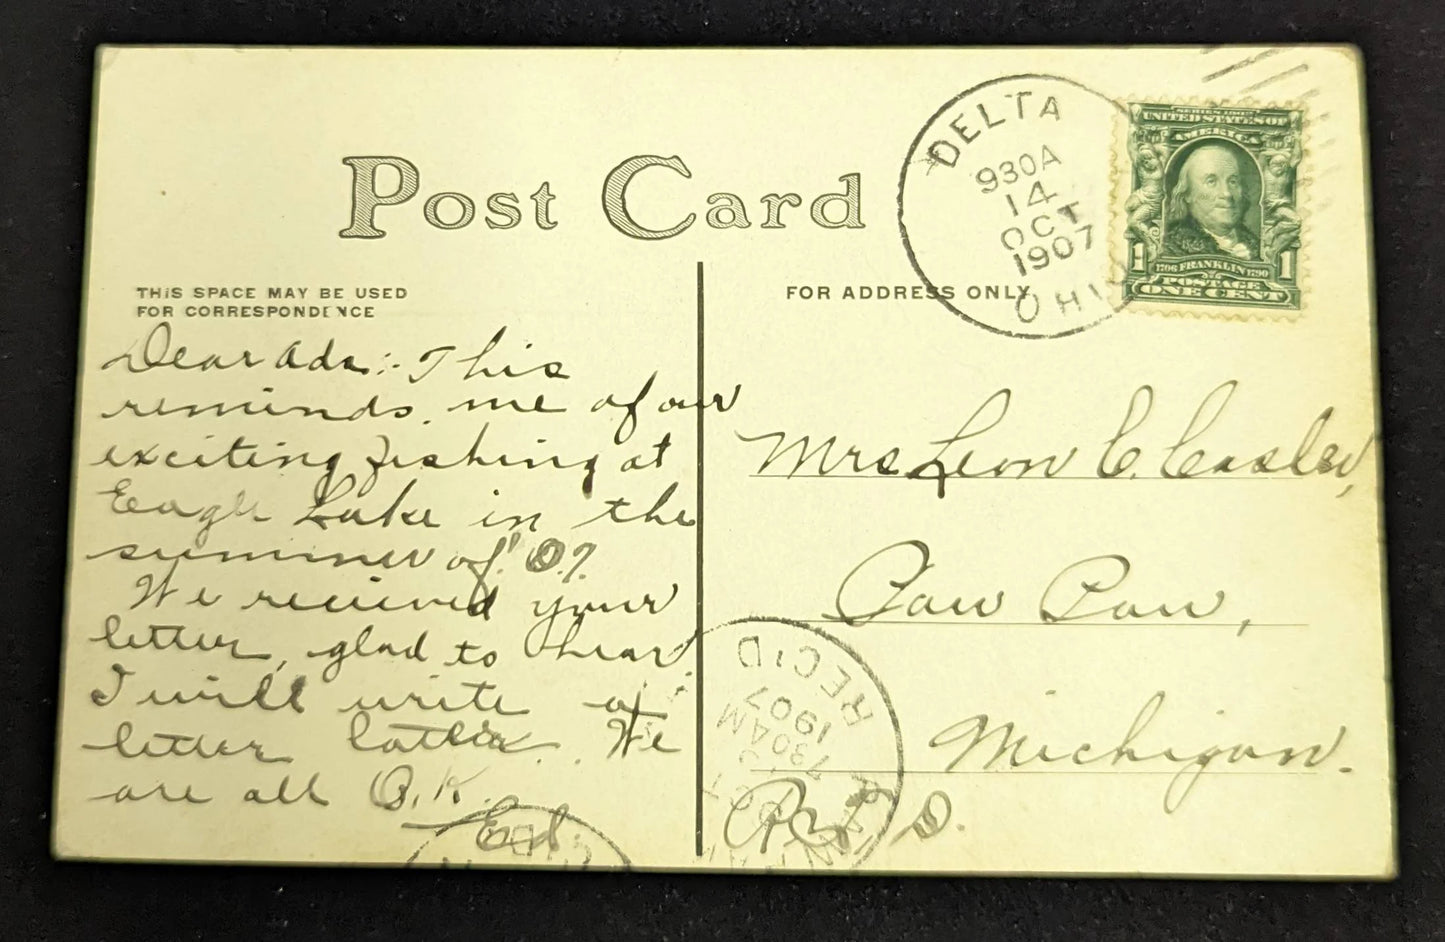 Post Card
THIS SPACE MAY BE USED
FOR CORRESPONDENCE
FOR ADDRESS ONLY
DELTA
930A
14
OCT
1907
OHIO
SERIES 1902
UNITED STATES OF
AMERICA
1706 FRANKLIN 1790
1 1
POSTAGE
ONE CENT
Dear Ada:- This
reminds me of our
exciting fishing at
Eagle Lake in the
summer of '07.
We recieved your
letter, glad to hear
I will write a
letter latter. We
are all O.K.
Ed.
Mrs Leon C. Cosler,
Paw Paw,
Michigan.
R. D.
REC'D
1907
730AM
REC'D